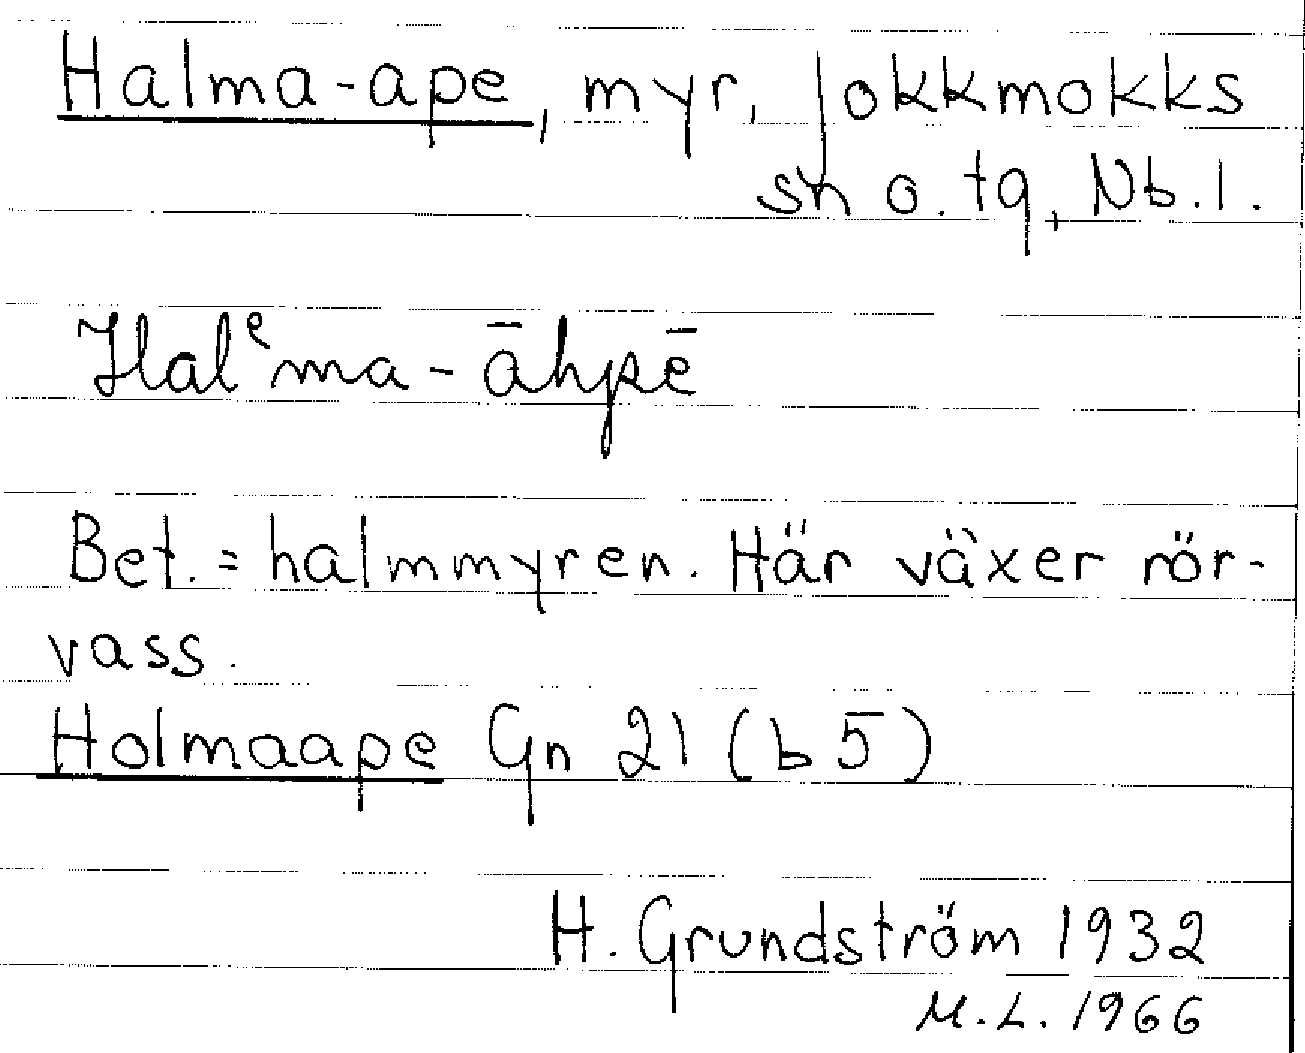 Halma-ape, myr, Jokkmokks
sn o. tg, Nb. l.
Halᵉma-āhpē
Bet. = halmmyren. Här växer rör-
vass.
Holmaape Gn 21 (b 5)
H. Grundström 1932
M.L. 1966